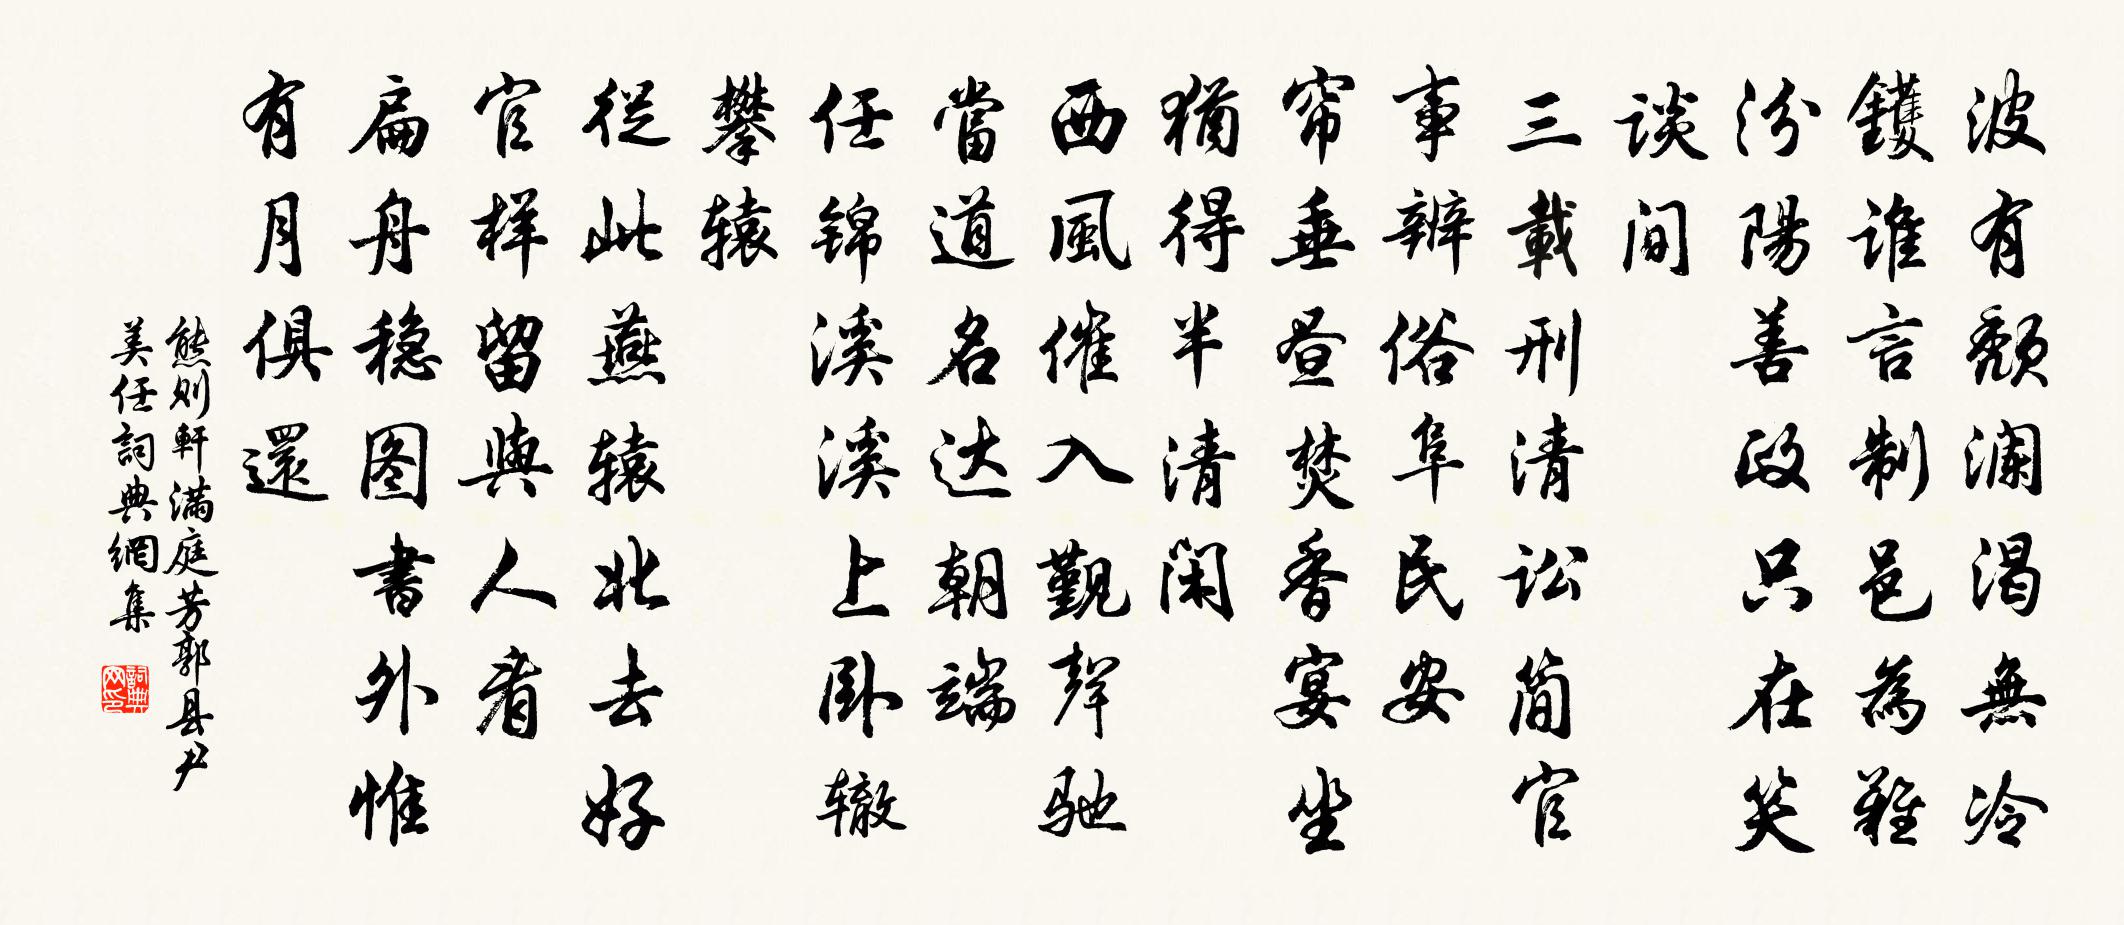 波有颓澜渴無冷
鑊谁言制邑為難
汾陽善政只在笑
谈间
三載刑清讼简官
事辨俗阜民安
帘垂昼焚香宴坐
猶得半清闲
西風催入觐聲驰
當道名达朝端
任锦溪溪上卧辙
攀辕
從此燕辕北去好
官样留與人看
扁舟穏图書外惟
有月俱還
熊则軒满庭芳郭县尹
美任詞典網集
詞典網印